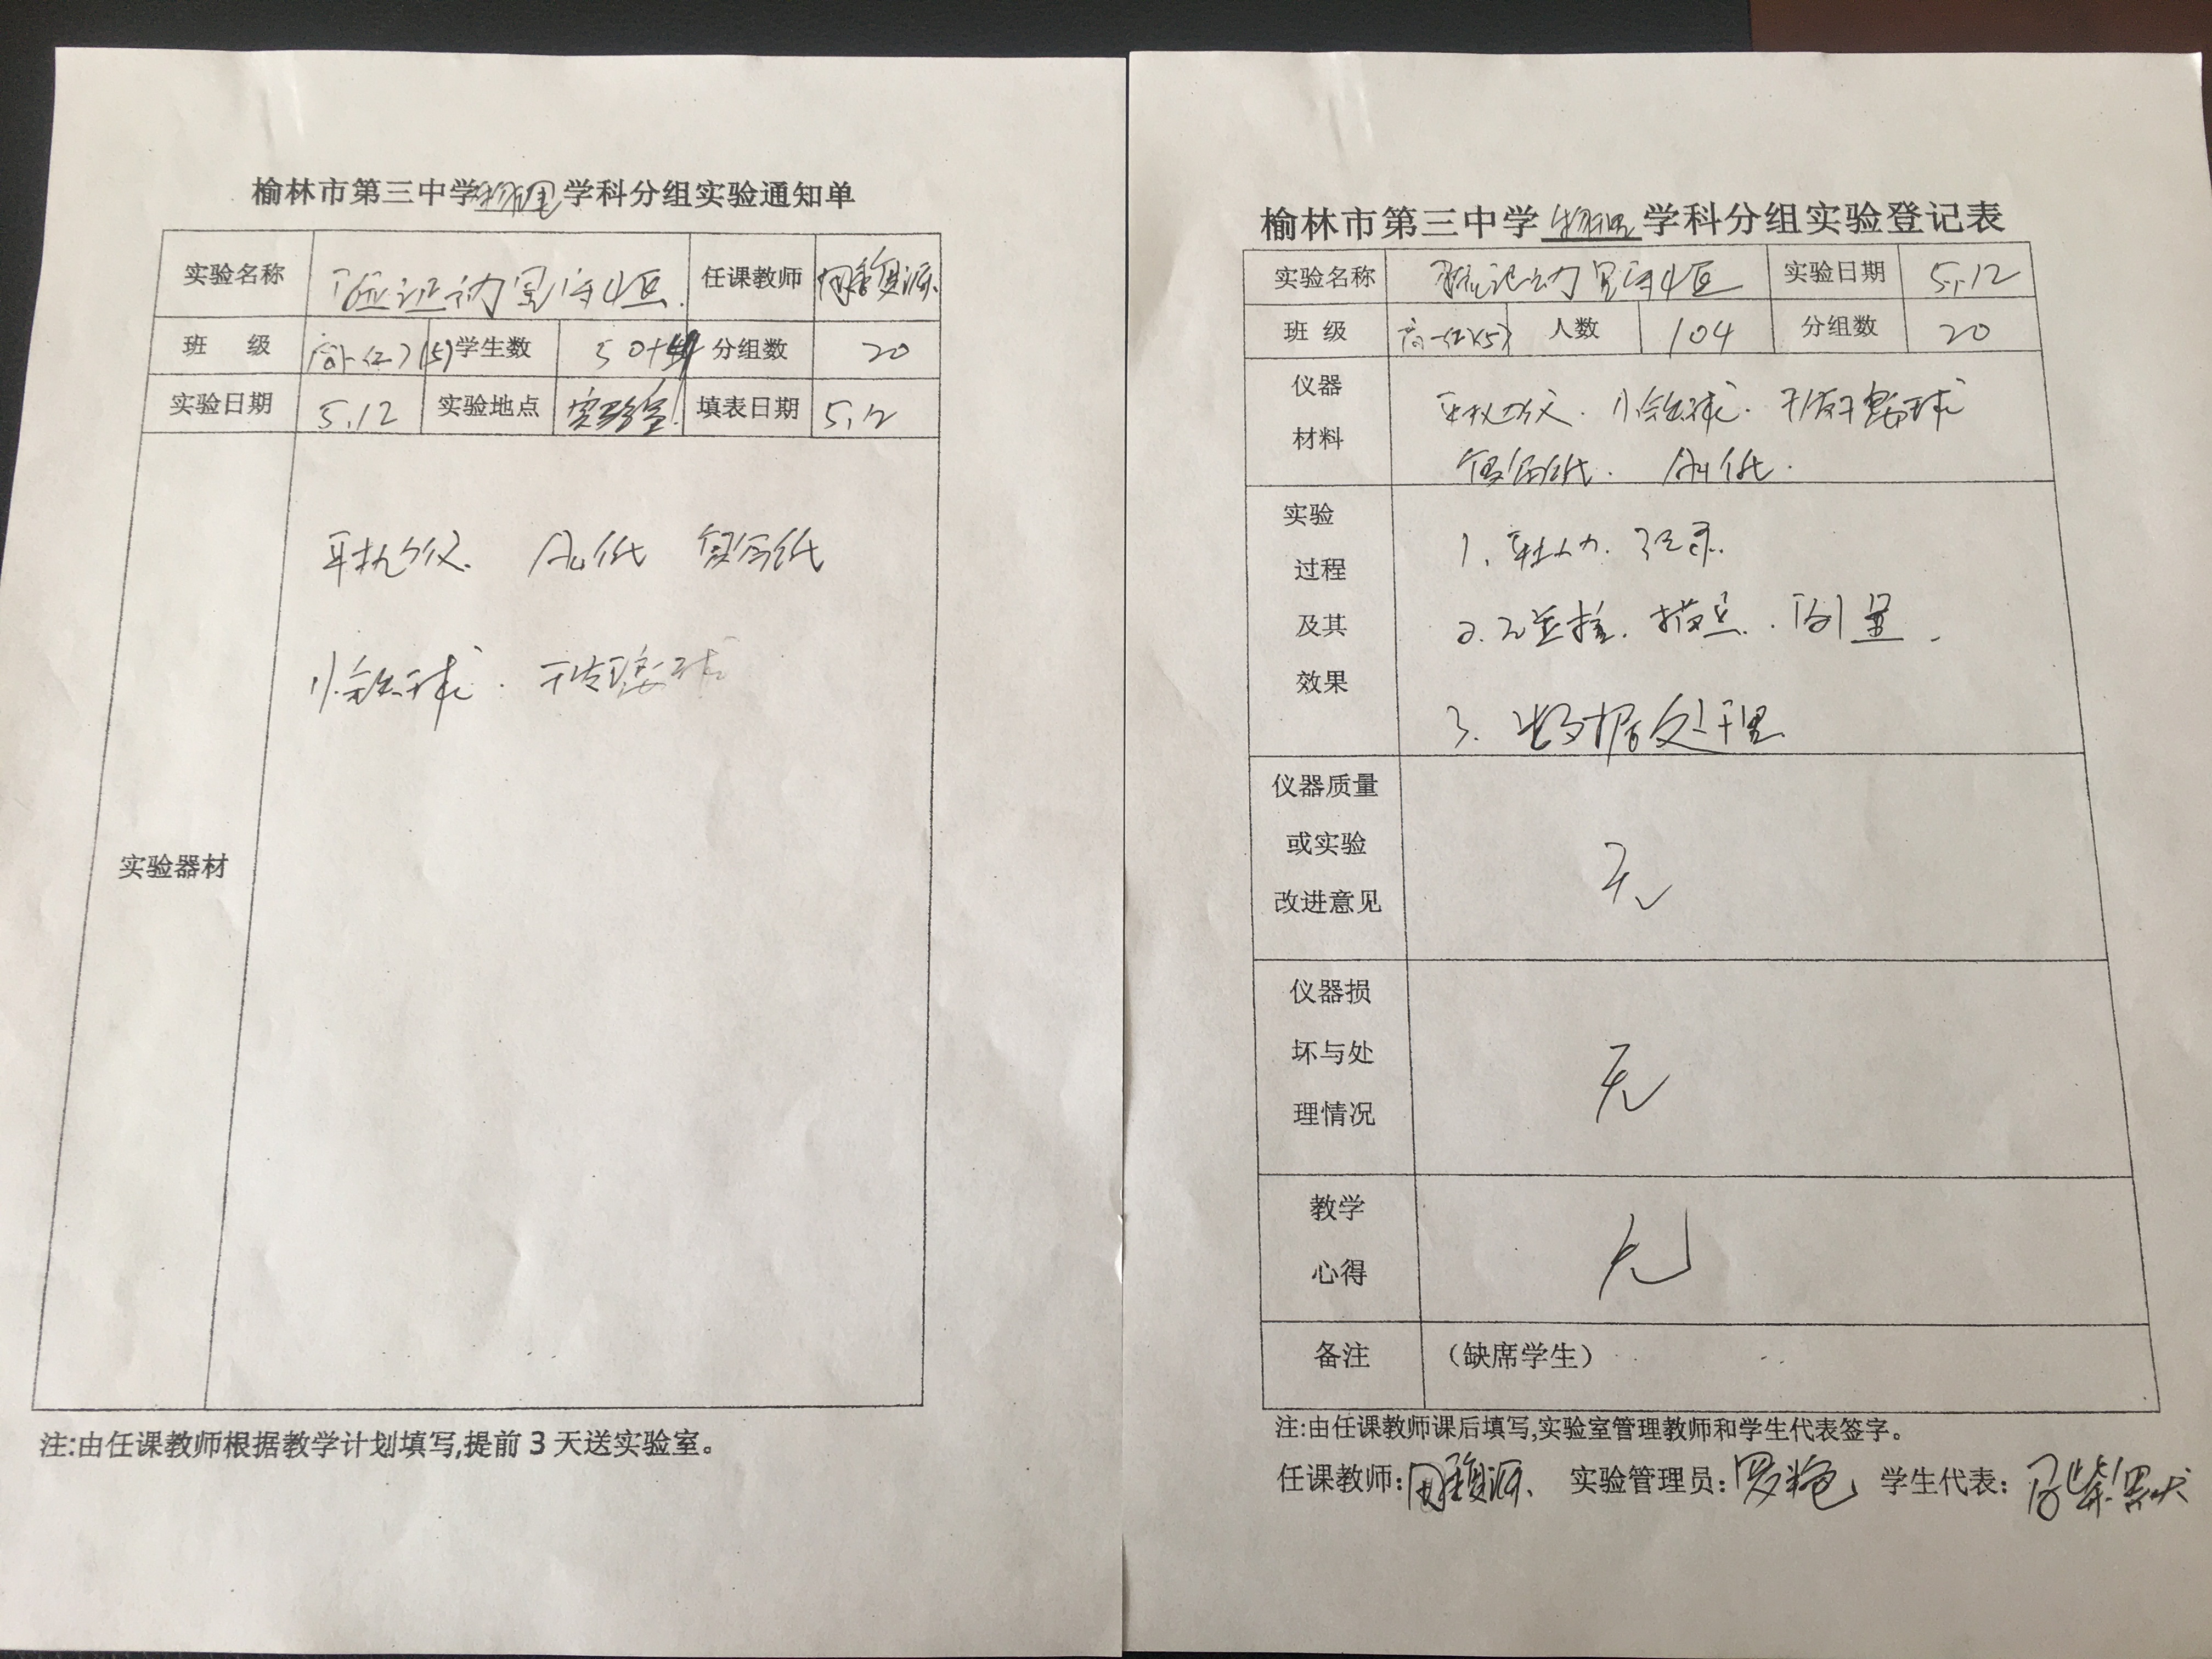 榆林市第三中学物理学科分组实验通知单
实验名称 验证动量守恒. 任课教师
班 级 高一(2)(5) 学生数 50+54 分组数 20
实验日期 5.12 实验地点 实验室 填表日期 5.12
实验器材
平抛仪. A4纸 复写纸
小钢球.
注:由任课教师根据教学计划填写,提前3天送实验室。
榆林市第三中学物理学科分组实验登记表
实验名称 验证动量守恒 实验日期 5.12
班 级 高一(2)(5) 人数 104 分组数 20
仪器
材料
平抛仪. 小钢球.
复写纸. A4纸.
实验
过程
及其
效果
1.
2. 描点. 测量.
3. 数据处理
仪器质量
或实验
改进意见
无
仪器损
坏与处
理情况
无
教学
心得
无
备注 (缺席学生)
注:由任课教师课后填写,实验室管理教师和学生代表签字。
任课教师: 实验管理员: 学生代表: